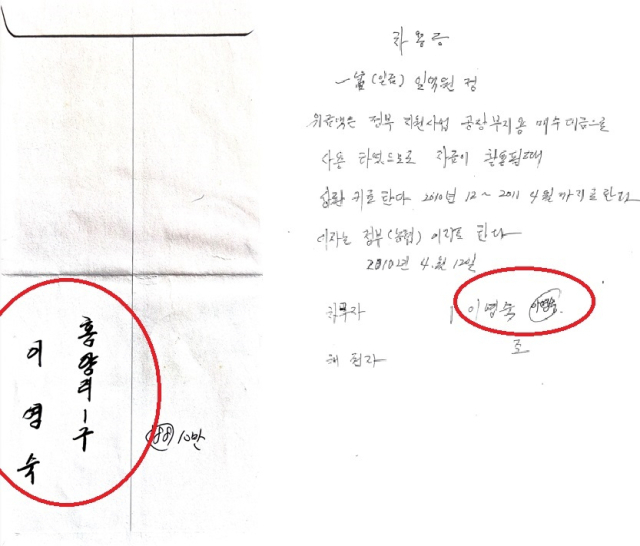 홍양리 1구
이영숙
10만
차용증
一金(일금) 일억원 정
위금액은 정부 지원사업 공장부지용 매수 대금으로
사용 하였으므로 자금이
상환 키로 한다 2010년 12 ~ 2011 4월까지로 한다
이자는 정부(농협) 이자로 한다
2010년 4.월 12일
채무자 이영숙 이영숙